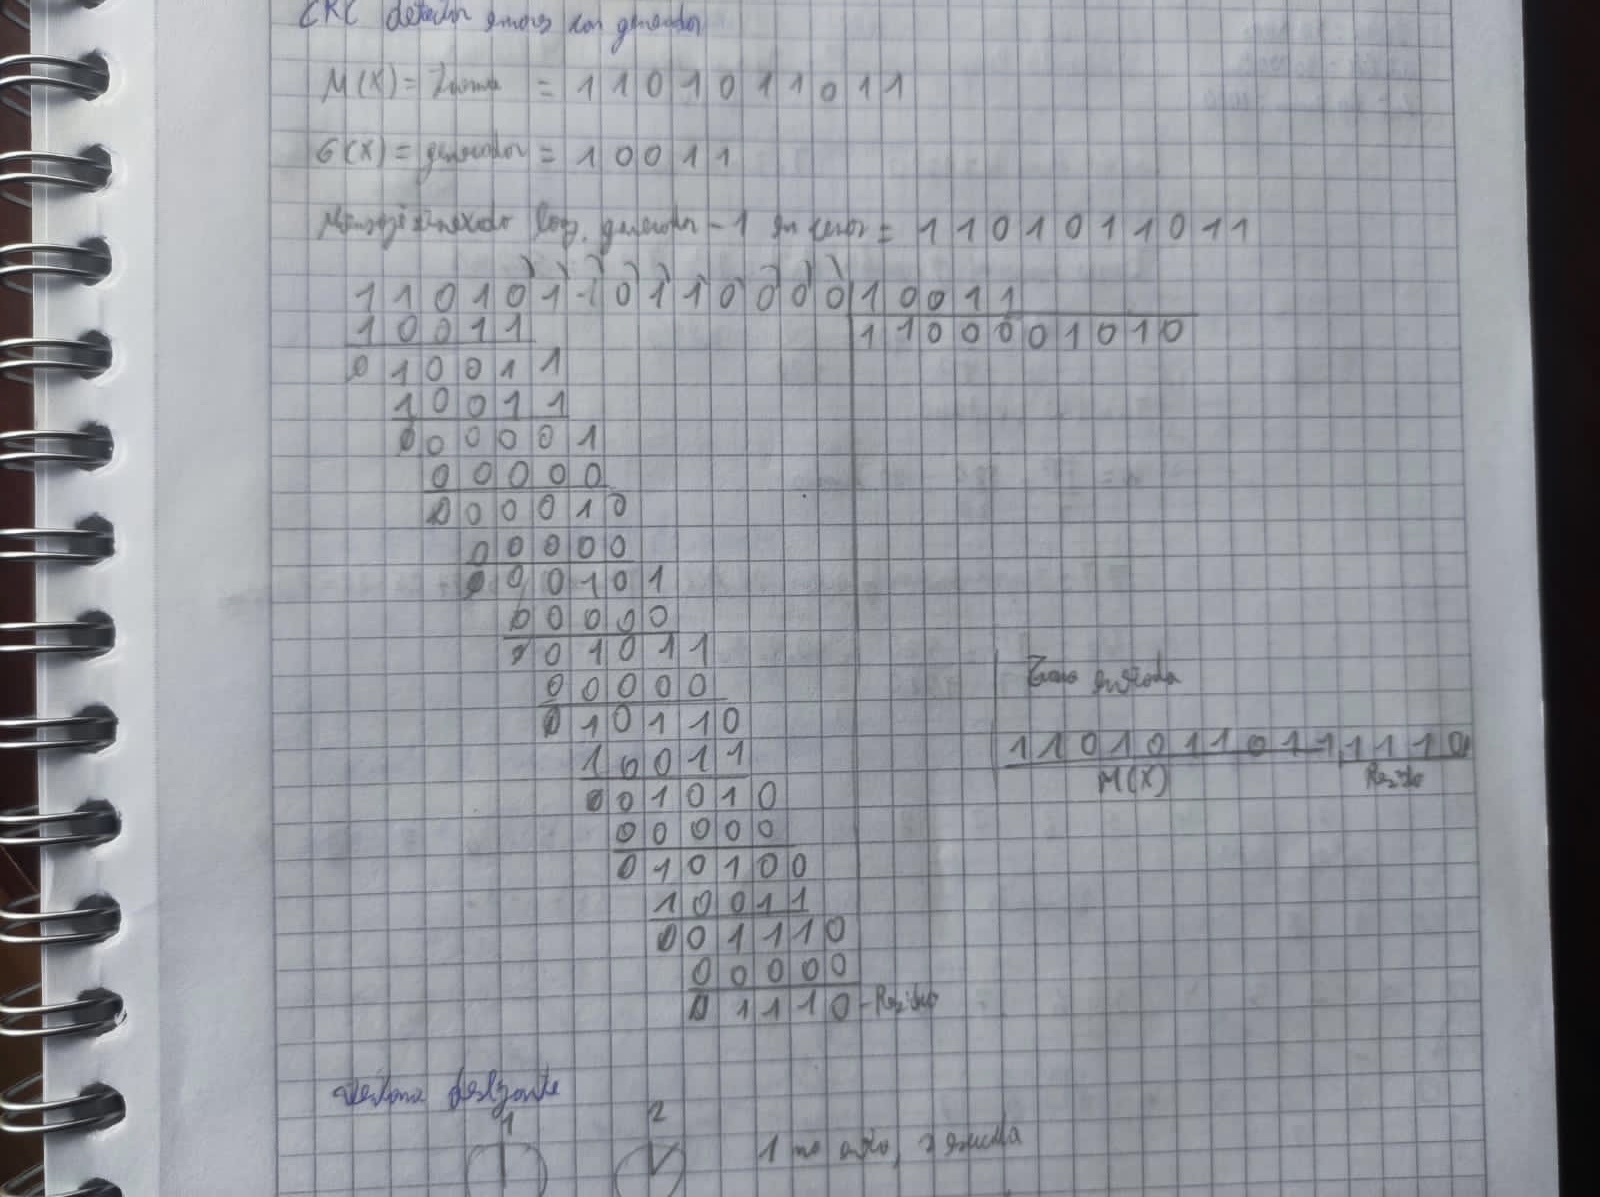 CRC detector errores con generador
M(X) = Trama = 1101011011
G(X) = generador = 10011
Mensaje anexado long. generador - 1 en ceros = 1101011011
11010110110000 10011
10011 1100001010
010011
10011
000001
00000
000010
00000
000101
00000
001011
00000
010110
10011
001010
00000
010100
10011
001110
00000
01110 - Residuo
Trama enviada
11010110111110
M(X) Residuo
Ventana deslizante
1 2
1 no envia, 2 escucha